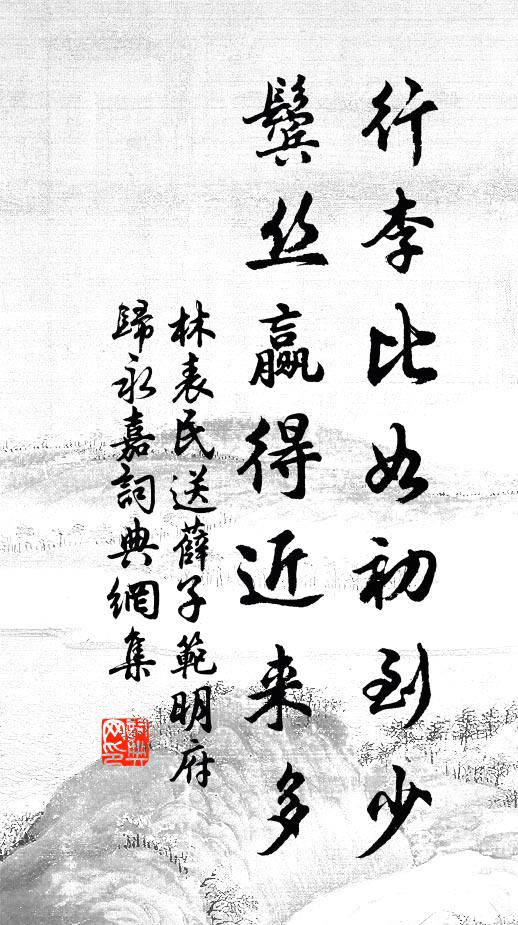 行李比如初到少
鬓丝赢得近来多
林表民送薛子範明府
歸永嘉詞典網集